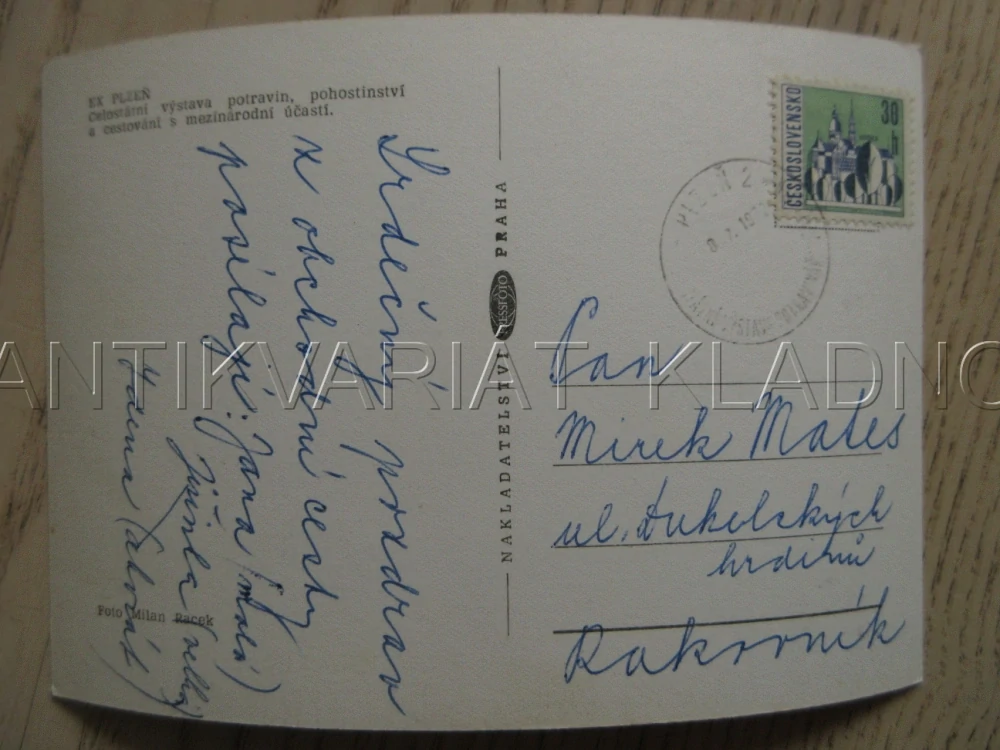 EX PLZEŇ
Celostátní výstava potravin, pohostinství
a cestování s mezinárodní účastí.
Srdečný pozdrav
z obchodní cesty
posílají: Jana (malá)
Jiřinka (velká)
Foto Milan Racek
NAKLADATELSTVÍ PRESSFOTO PRAHA
ČESKOSLOVENSKO
30 h
PLZEŇ 2
Pan
Mirek Mates
ul. Dukelských
hrdinů
Rakovník
ANTIKVARIAT KLADNO